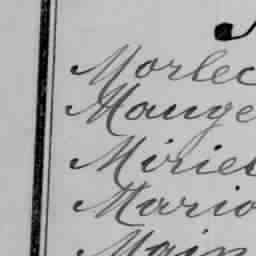 Morlec
Mauge
Miries
Mario
Main